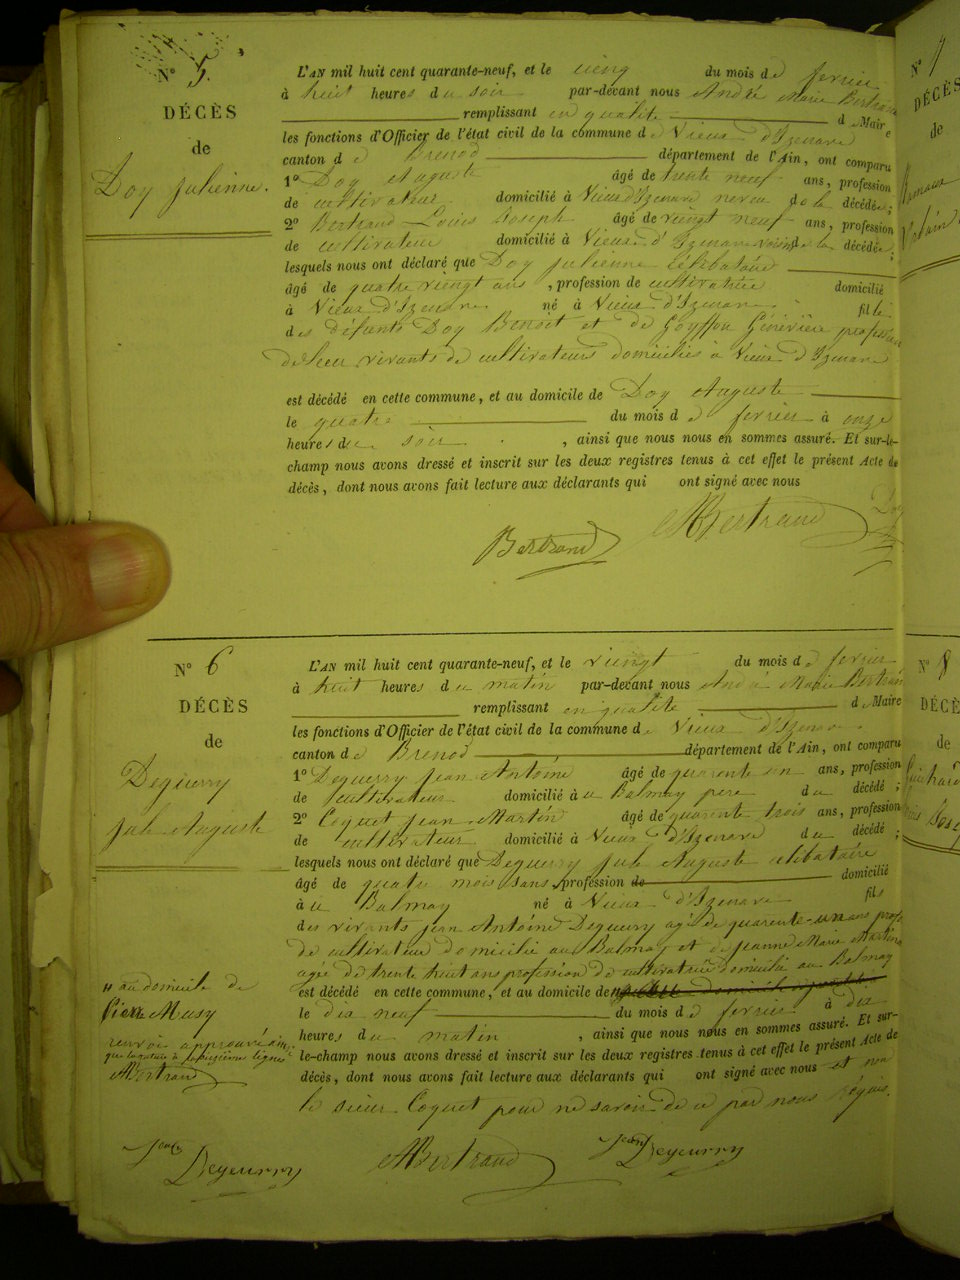 N° 5.
DÉCÈS
de
Doy Julienne.
L'AN mil huit cent quarante-neuf, et le cinq du mois de février
à huit heures du soir par-devant nous André Marie Bertrand
remplissant en qualité d Maire
les fonctions d'Officier de l'état civil de la commune de Vieux d'Izenave
canton de Brenod département de l'Ain, ont comparu
1° Doy Auguste âgé de trente neuf ans, profession
de cultivateur domicilié à Vieux d'Izenave neveu de la décédée;
2° Bertrand Louis Joseph âgé de vingt neuf ans, profession
de cultivateur domicilié à Vieux d'Izenave voisin de la décédée;
lesquels nous ont déclaré que Doy Julienne célibataire
âgé de quatre vingt ans, profession de cultivatrice domicilié
à Vieux d'Izenave né à Vieux d'Izenave fille
des défunts Doy Benoit et de Goyffon Génevière profession
de leur vivants de cultivateurs domiciliés à Vieux d'Izenave
est décédé en cette commune, et au domicile de Doy Auguste
le quatre du mois de février à onze
heures du soir, ainsi que nous nous en sommes assuré. Et sur-le-
champ nous avons dressé et inscrit sur les deux registres tenus à cet effet le présent Acte de
décès, dont nous avons fait lecture aux déclarants qui ont signé avec nous
Bertrand AMBertrand
N° 6
DÉCÈS
de
Deguerry
Jule Auguste
L'AN mil huit cent quarante-neuf, et le vingt du mois de février
à huit heures du matin par-devant nous André Marie Bertrand
remplissant en qualité d Maire
les fonctions d'Officier de l'état civil de la commune de Vieux d'Izenave
canton de Brenod département de l'Ain, ont comparu
1° Deguerry Jean Antoine âgé de quarente un ans, profession
de cultivateur domicilié à u Balmay père du décédé;
2° Coquet Jean Martin âgé de quarente trois ans, profession
de cultivateur domicilié à Vieux d'Izenave du décédé;
lesquels nous ont déclaré que Deguerry Jule Auguste célibataire
âgé de quatre mois sans profession de domicilié
à u Balmay né à Vieux d'Izenave fils
des vivants Jean Antoine Deguerry agé de quarente-un ans prof.
de cultivateur domicilié au Balmay et de Jeanne Marie Martine
agée de trente huit ans profession de cultivatrice domicilié au Balmay
est décédé en cette commune, et au domicile de
le dix neuf du mois de février à dix
heures du matin, ainsi que nous nous en sommes assuré. Et sur-
le-champ nous avons dressé et inscrit sur les deux registres tenus à cet effet le présent Acte de
décès, dont nous avons fait lecture aux déclarants qui ont signé avec nous et non
le sieur Coquet pour ne savoir de ce par nous réquis.
au domicile de
Pierre Musy
renvoi approuvé
AMBertrand
Deguerry AMBertrand Jean Deguerry
N° 7
DÉCÈS
de
N° 8
DÉCÈ
de